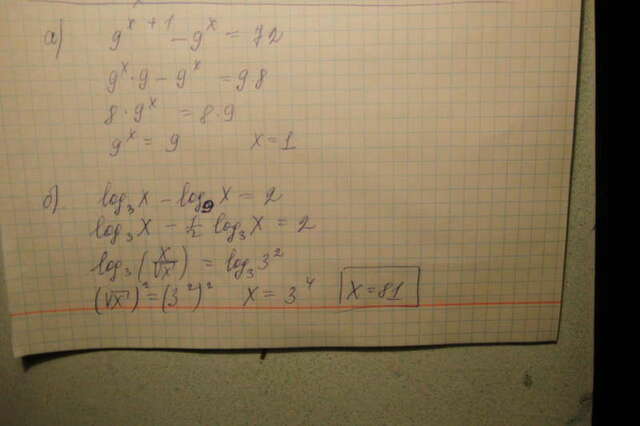 а) 9^{x+1} - 9^x = 72
9^x · 9 - 9^x = 9·8
8 · 9^x = 8·9
9^x = 9 x = 1
б) log₃x - log₉x = 2
log₃x - 1/2 log₃x = 2
log₃(x/√x) = log₃3²
(√x)² = (3²)² x = 3⁴ x = 81